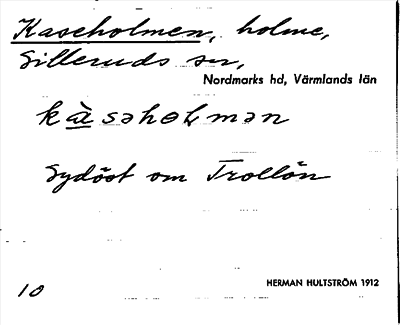 Kaseholmen, holme,
Silleruds sn,
Nordmarks hd, Värmlands län
kàsəhɷɫmən
Sydöst om Trollön
HERMAN HULTSTRÖM 1912
10